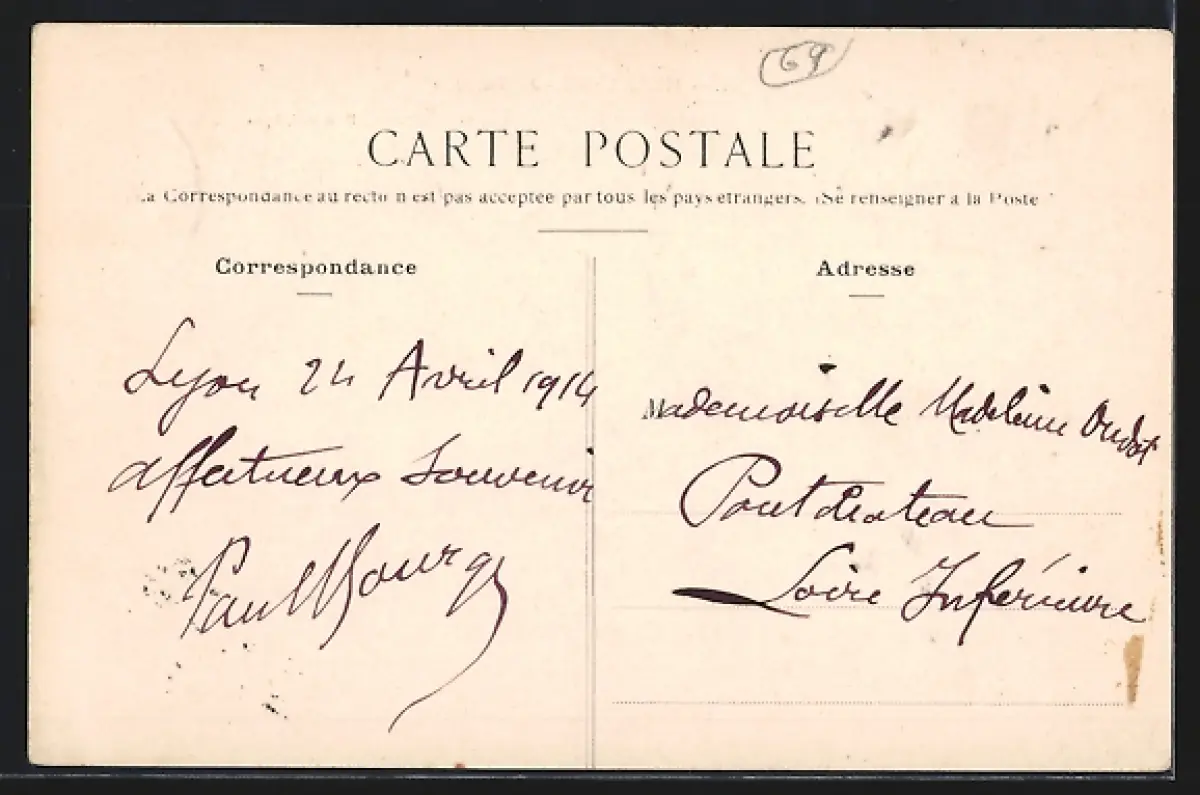 69
CARTE POSTALE
La Correspondance au recto n'est pas acceptée par tous les pays étrangers. (Se renseigner à la Poste
Correspondance
Adresse
Lyon 24 Avril 1914
affectueux Souvenir
Paul Bourg
Mademoiselle Madeleine Oudot
Pontchateau
Loire Inférieure